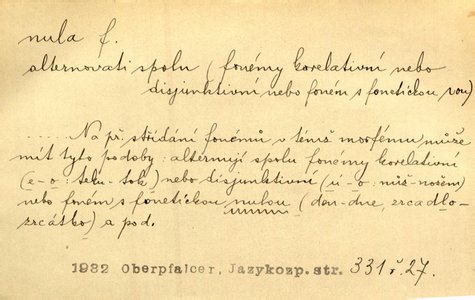 nula f.
alternovati spolu (fonémy korelativní nebo
disjunktivní nebo foném s fonetickou nou)
..... Na př. střídání fonémů v témž morfému může
mít tyto podoby: alternují spolu fonemy korelativní
(e-o: teku-tok) nebo disjunktivní (ů-o: nůž-nožem)
nebo foném s fonetickou nulou (den-dne, zrcadlo-
zrcátko) a pod.
1932 Oberpfalcer, Jazykozp. str. 331 ř. 27.